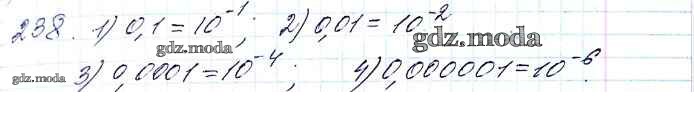 238. 1) 0,1 = 10⁻¹; 2) 0,01 = 10⁻²
gdz.moda gdz.moda
gdz.moda 3) 0,0001 = 10⁻⁴; 4) 0,000001 = 10⁻⁶.